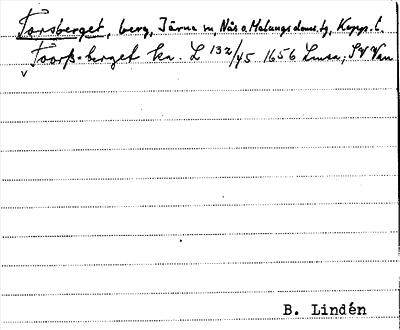 Forsberget, berg, Järna sn, Nås o. Malungs doms. tg, Kopp. l.
Foorß-berget kr. L 132/45 1656 Lmsa,
B. Lindén